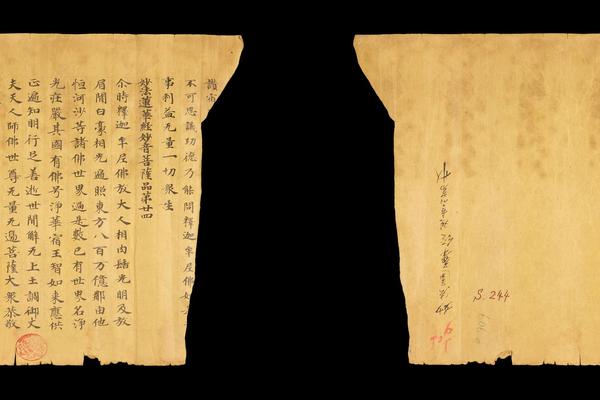 讚宿
不可思議功德乃能問釋迦牟尼佛如
事利益无量一切衆生
妙法蓮華経妙音菩薩品第廿四
尒時釋迦牟尼佛放大人相肉髻光明及放
眉間白豪相光遍照東方八百万億那由他
恒河沙等諸佛世界過是數已有世界名淨
光莊嚴其國有佛号淨華宿王智如来應供
正遍知明行足善逝世間解无上士調御丈
夫天人師佛世尊无量无邊菩薩大衆恭敬
S. 244